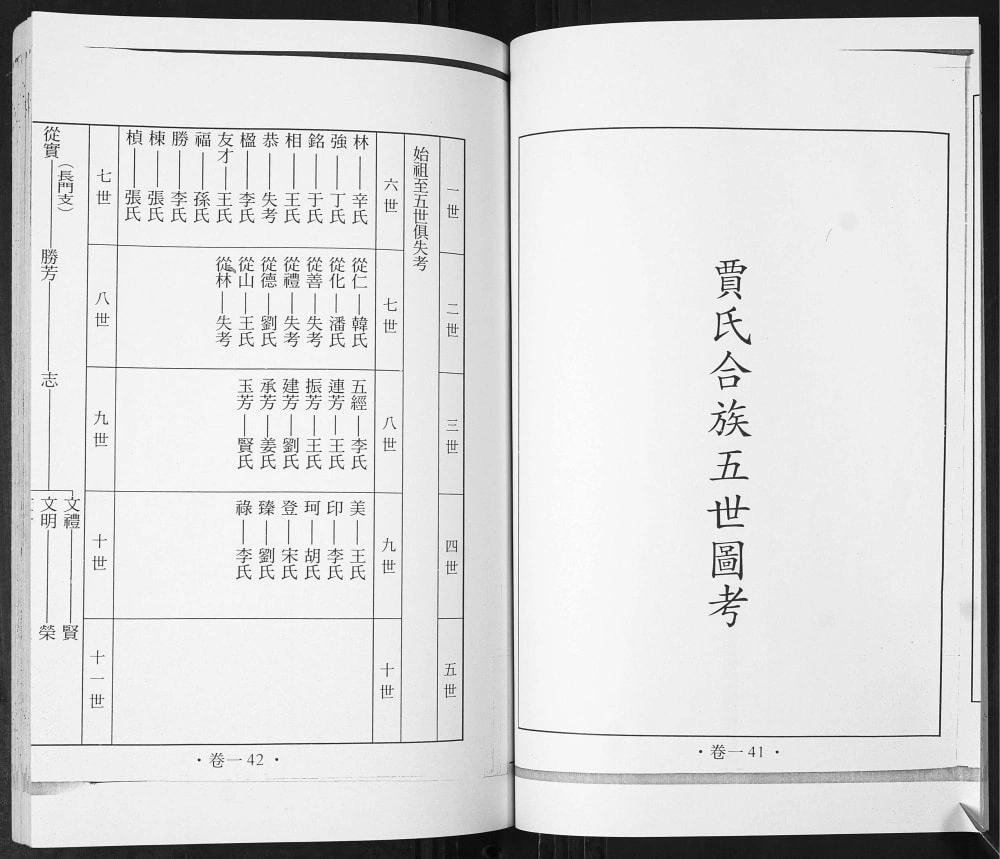 賈氏合族五世圖考
·卷一41·
一世
二世
三世
四世
五世
始祖至五世俱失考
六世
七世
八世
九世
十世
林——辛氏
強——丁氏
銘——于氏
相——王氏
恭——失考
楹——李氏
友才——王氏
福——孫氏
勝——李氏
棟——張氏
楨——張氏
從仁—韓氏
從化—潘氏
從善—失考
從禮—失考
從德—劉氏
從山—王氏
從林—失考
五經—李氏
連芳—王氏
振芳—王氏
建芳—劉氏
承芳—姜氏
玉芳—賢氏
美——王氏
印——李氏
珂——胡氏
登——宋氏
臻——劉氏
祿——李氏
七世
八世
九世
十世
十一世
從實(長門支)——勝芳——志
文禮——賢
文明——榮
·卷一42·